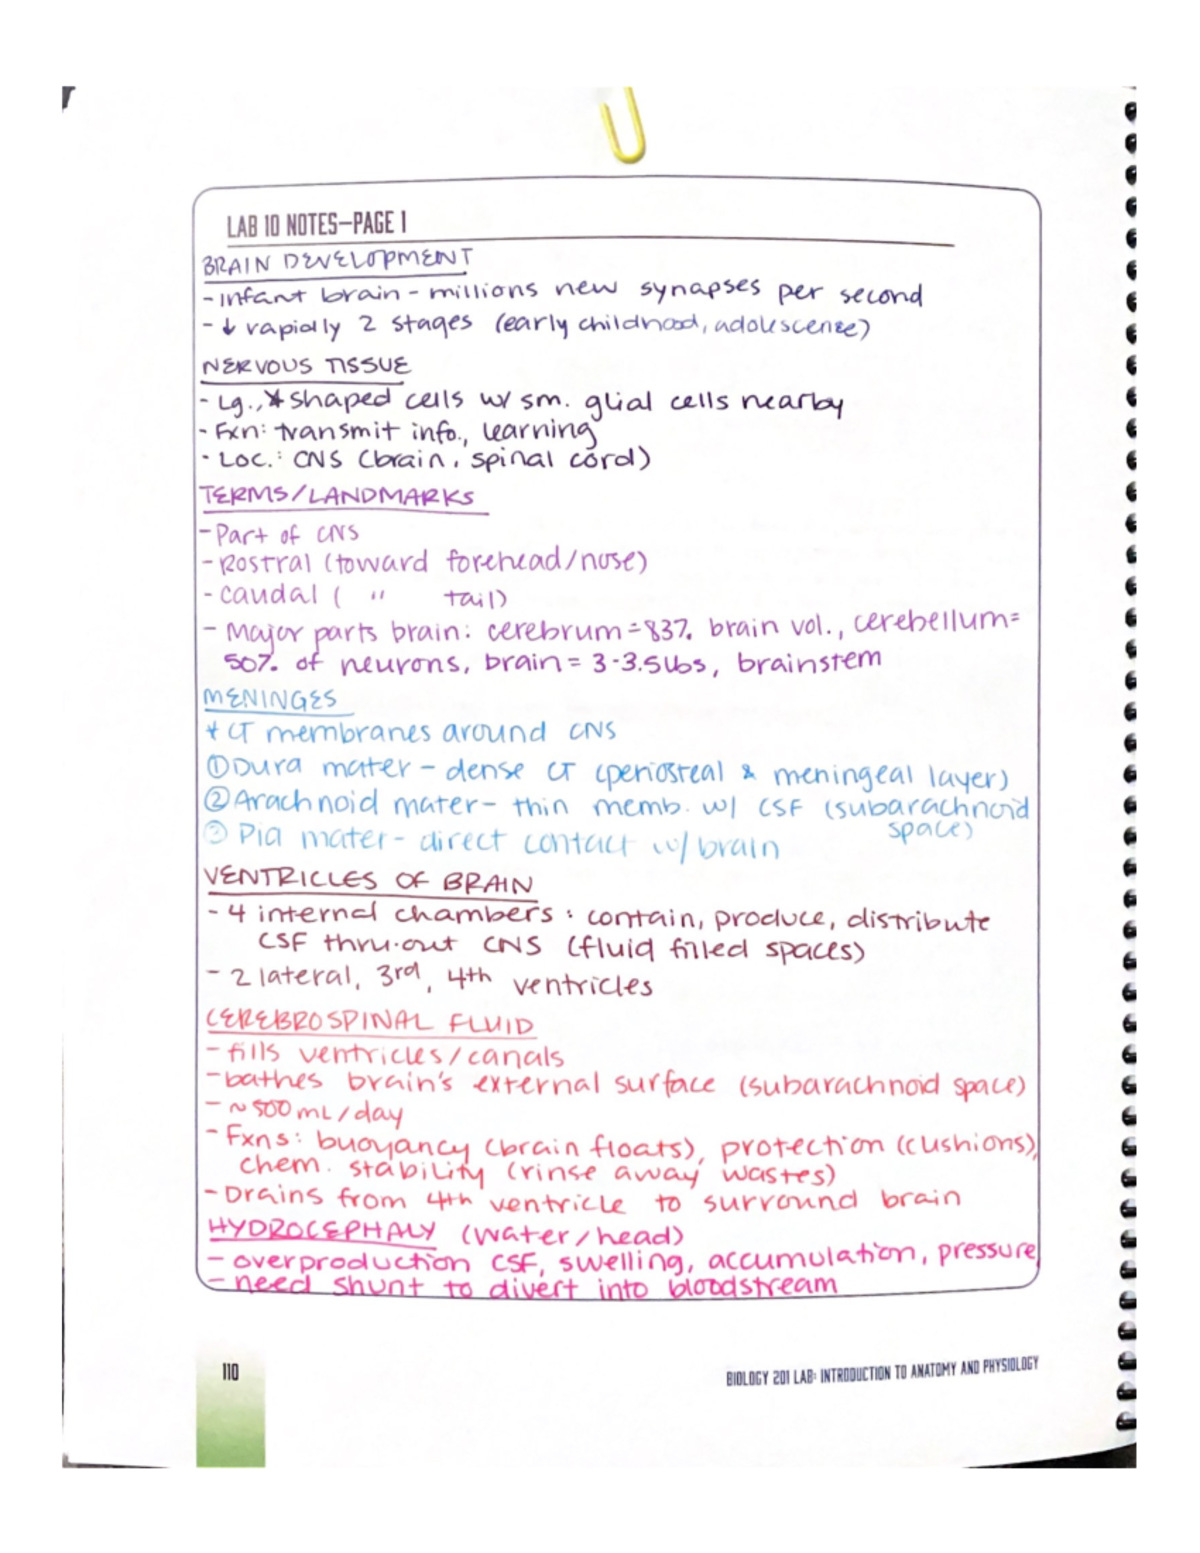 LAB 10 NOTES—PAGE 1
BRAIN DEVELOPMENT
- infant brain - millions new synapses per second
- ↓ rapidly 2 stages (early childhood, adolescense)
NERVOUS TISSUE
- Lg., * shaped cells w/ sm. glial cells nearby
- Fxn: transmit info., learning
- Loc.: CNS (brain, spinal cord)
TERMS/LANDMARKS
- Part of CNS
- Rostral (toward forehead/nose)
- caudal ( " tail)
- Major parts brain: cerebrum = 83% brain vol., cerebellum =
50% of neurons, brain = 3-3.5 lbs, brainstem
MENINGES
* CT membranes around CNS
① Dura mater - dense CT (periosteal & meningeal layer)
② Arachnoid mater - thin memb. w/ CSF (subarachnoid
space)
③ Pia mater - direct contact w/ brain
VENTRICLES OF BRAIN
- 4 internal chambers: contain, produce, distribute
CSF thru-out CNS (fluid filled spaces)
- 2 lateral, 3rd, 4th ventricles
CEREBROSPINAL FLUID
- fills ventricles/canals
- bathes brain's external surface (subarachnoid space)
- ~500 mL/day
- Fxns: buoyancy (brain floats), protection (cushions),
chem. stability (rinse away wastes)
- Drains from 4th ventricle to surround brain
HYDROCEPHALY (water/head)
- overproduction CSF, swelling, accumulation, pressure
- need shunt to divert into bloodstream
110
BIOLOGY 201 LAB: INTRODUCTION TO ANATOMY AND PHYSIOLOGY